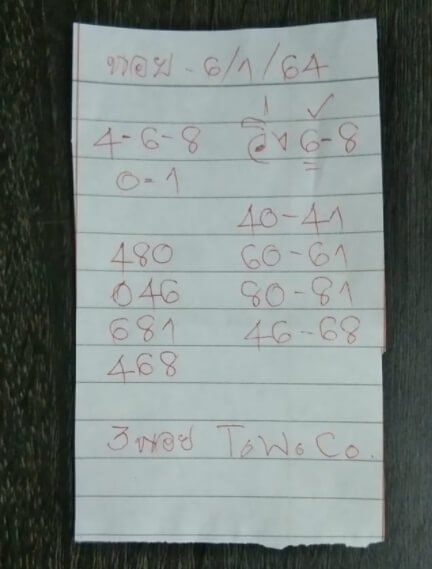 หวย - 6/1/64
4-6-8 วิ่ง 6-8
0-1
40-41
480 60-61
046 80-81
681 46-68
468
3 หวย